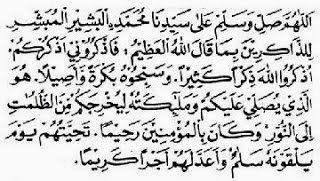 اَللّٰهُمَّ صَلِّ وَسَلِّمْ عَلٰى سَيِّدِنَا مُحَمَّدِ اِلْبَشِيْرِ الْمُبَشِّرِ
لِلذَّاكِرِيْنَ بِمَا قَالَ اللّٰهُ الْعَظِيْمُ. فَاذْكُرُوْنِيْ اَذْكُرْكُمْ.
اُذْكُرُوا اللّٰهَ ذِكْرًا كَثِيْرًا. وَسَبِّحُوْهُ بُكْرَةً وَاَصِيْلًا. هُوَ
الَّذِيْ يُصَلِّيْ عَلَيْكُمْ وَمَلٰٓئِكَتُهُ لِيُخْرِجَكُمْ مِنَ الظُّلُمَاتِ
اِلَى النُّوْرِ. وَكَانَ بِالْمُؤْمِنِيْنَ رَحِيْمًا. تَحِيَّتُهُمْ يَوْمَ
يَلْقَوْنَهُ سَلٰمٌ وَاَعَدَّ لَهُمْ اَجْرًا كَرِيْمًا.